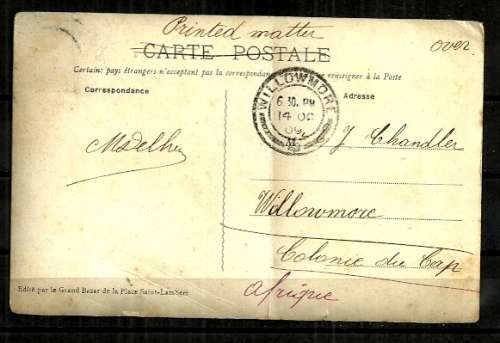 Printed matter
over
CARTE POSTALE
Certains pays étrangers n'acceptent pas la correspondan renseigner à la Poste
Correspondance
Adresse
WILLOWMORE
6.30. PM
14 OC
09
M
J Chandler
Willowmore
Colonie du Cap
Afrique
Edité par le Grand Bazar de la Place Saint-Lambert